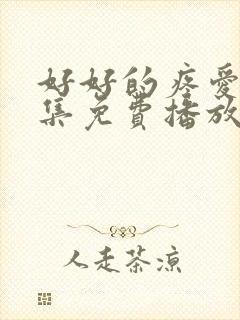 好好的疼爱
集免费播放
人走茶凉